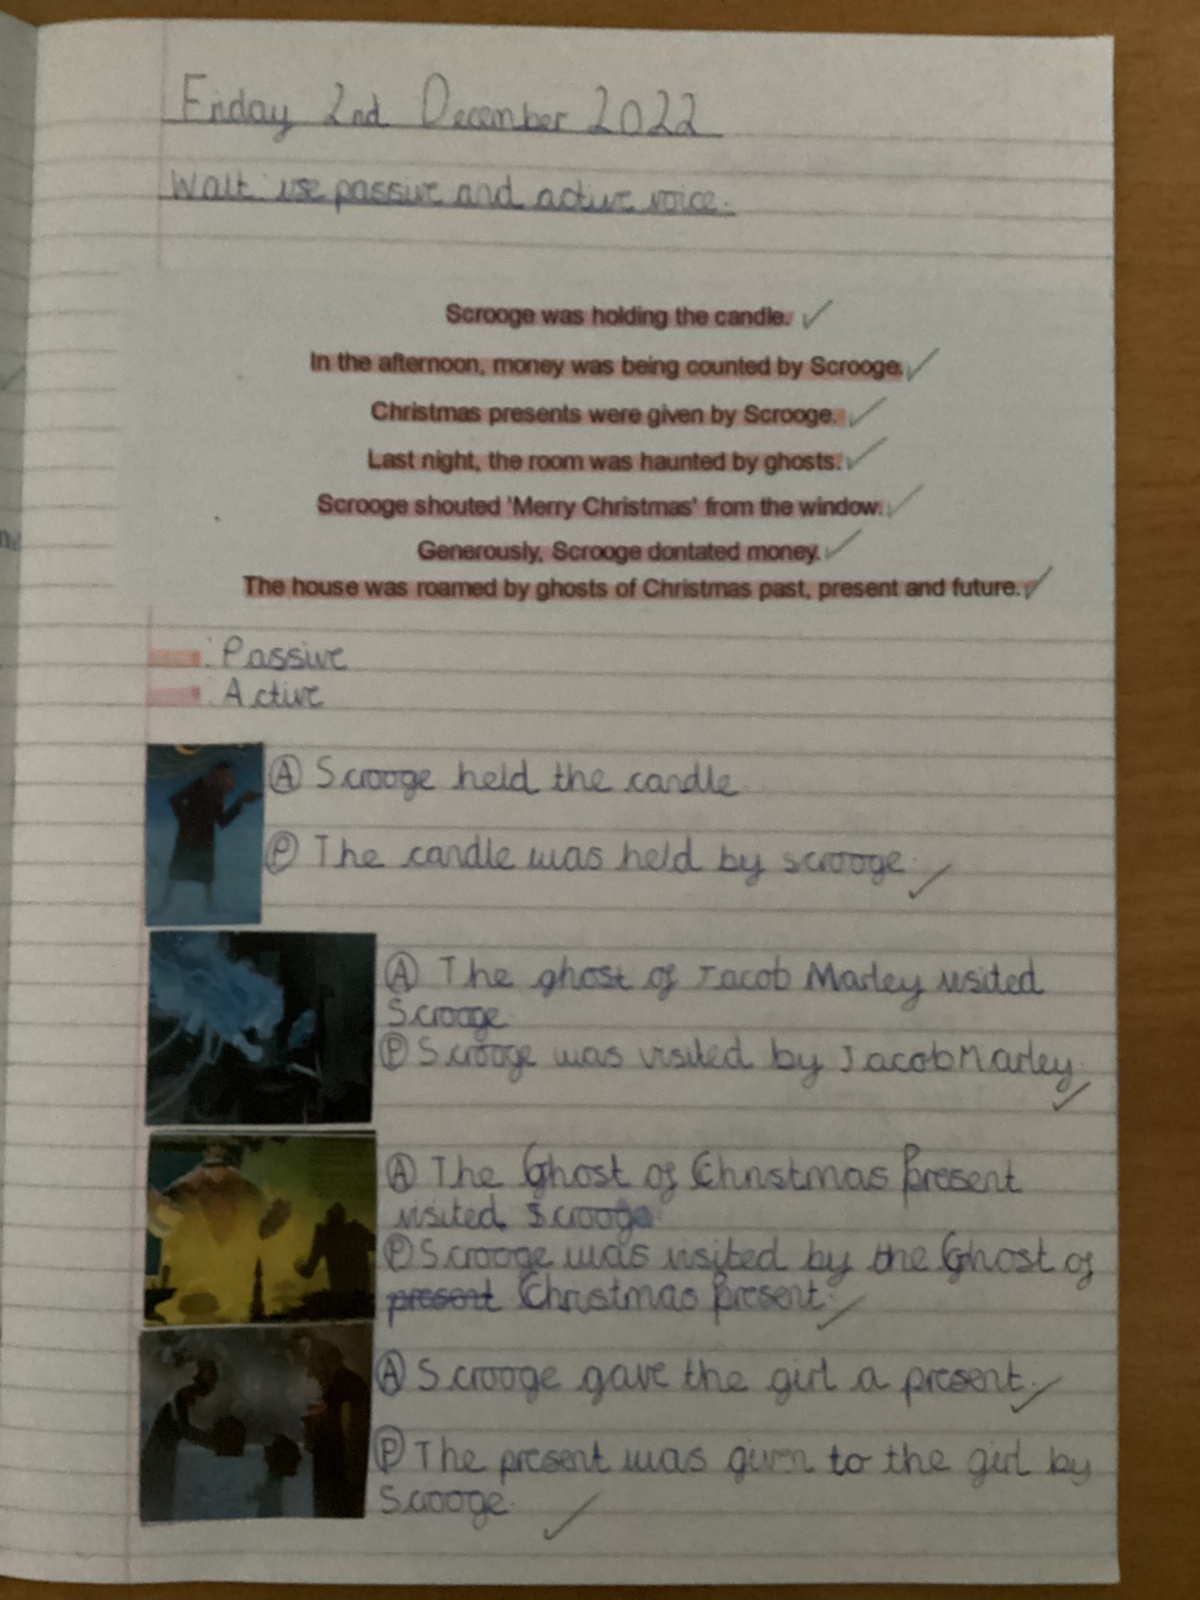 Friday 2nd December 2022
Walt: use passive and active voice.
Scrooge was holding the candle.
In the afternoon, money was being counted by Scrooge.
Christmas presents were given by Scrooge.
Last night, the room was haunted by ghosts.
Scrooge shouted 'Merry Christmas' from the window.
Generously, Scrooge dontated money.
The house was roamed by ghosts of Christmas past, present and future.
: Passive
: Active
A Scrooge held the candle.
P The candle was held by scrooge.
A The ghost of Jacob Marley visited
Scrooge.
P Scrooge was visited by Jacob Marley.
A The Ghost of Christmas Present
visited Scrooge.
P Scrooge was visited by the Ghost of
present Christmas Present.
A Scrooge gave the girl a present.
P The present was given to the girl by
Scrooge.